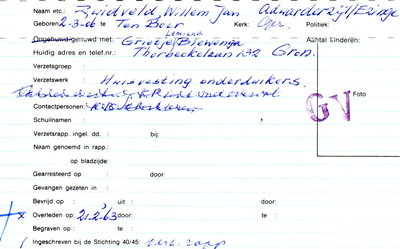 Naam etc.: Zuidveld, Willem Jan Aduarderzijl/Ezinge
Geboren 2-3-06 te Ten Boer Kerk: Politiek:
Lamiena
Ongehuwd/gehuwd met: Grietje Blewenga Aantal kinderen:
Huidig adres en telef.nr.: Thorbeckelaan 132 Gron.
Verzetsgroep :
Verzetswerk : Huisvesting onderduikers.
Contactpersonen:
Schuilnaam :
Foto
GV
Verzetsrapp. ingel. dd. : bij:
Naam genoemd in rapp.:
op bladzijde:
Gearresteerd op : door:
Gevangen gezeten in :
Bevrijd op : uit : door:
Overleden op : 21.2.63 door: te :
Begraven op : te :
Ingeschreven bij de Stichting 40/45: